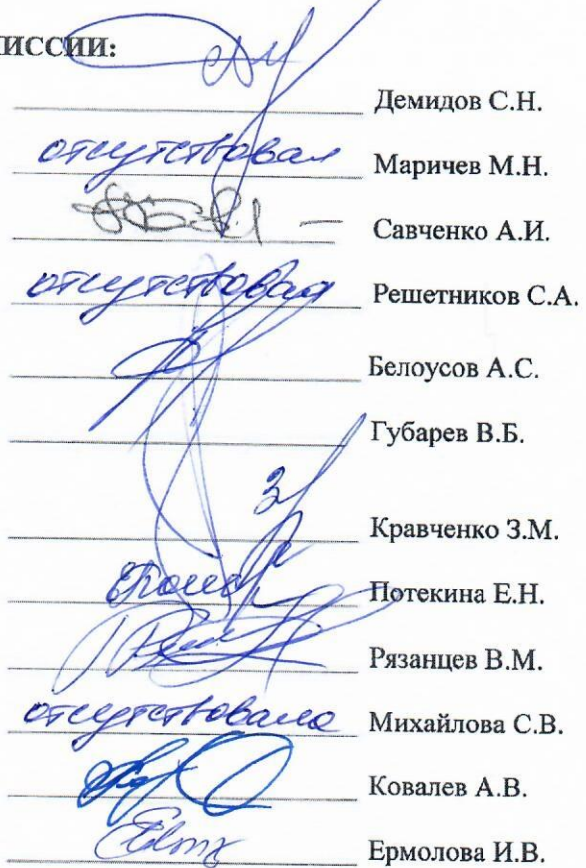 МИССИИ:
Демидов С.Н.
отсутствовал Маричев М.Н.
Савченко А.И.
отсутствовал Решетников С.А.
Белоусов А.С.
Губарев В.Б.
Кравченко З.М.
Потекина Е.Н.
Рязанцев В.М.
отсутствовала Михайлова С.В.
Ковалев А.В.
Ермолова И.В.